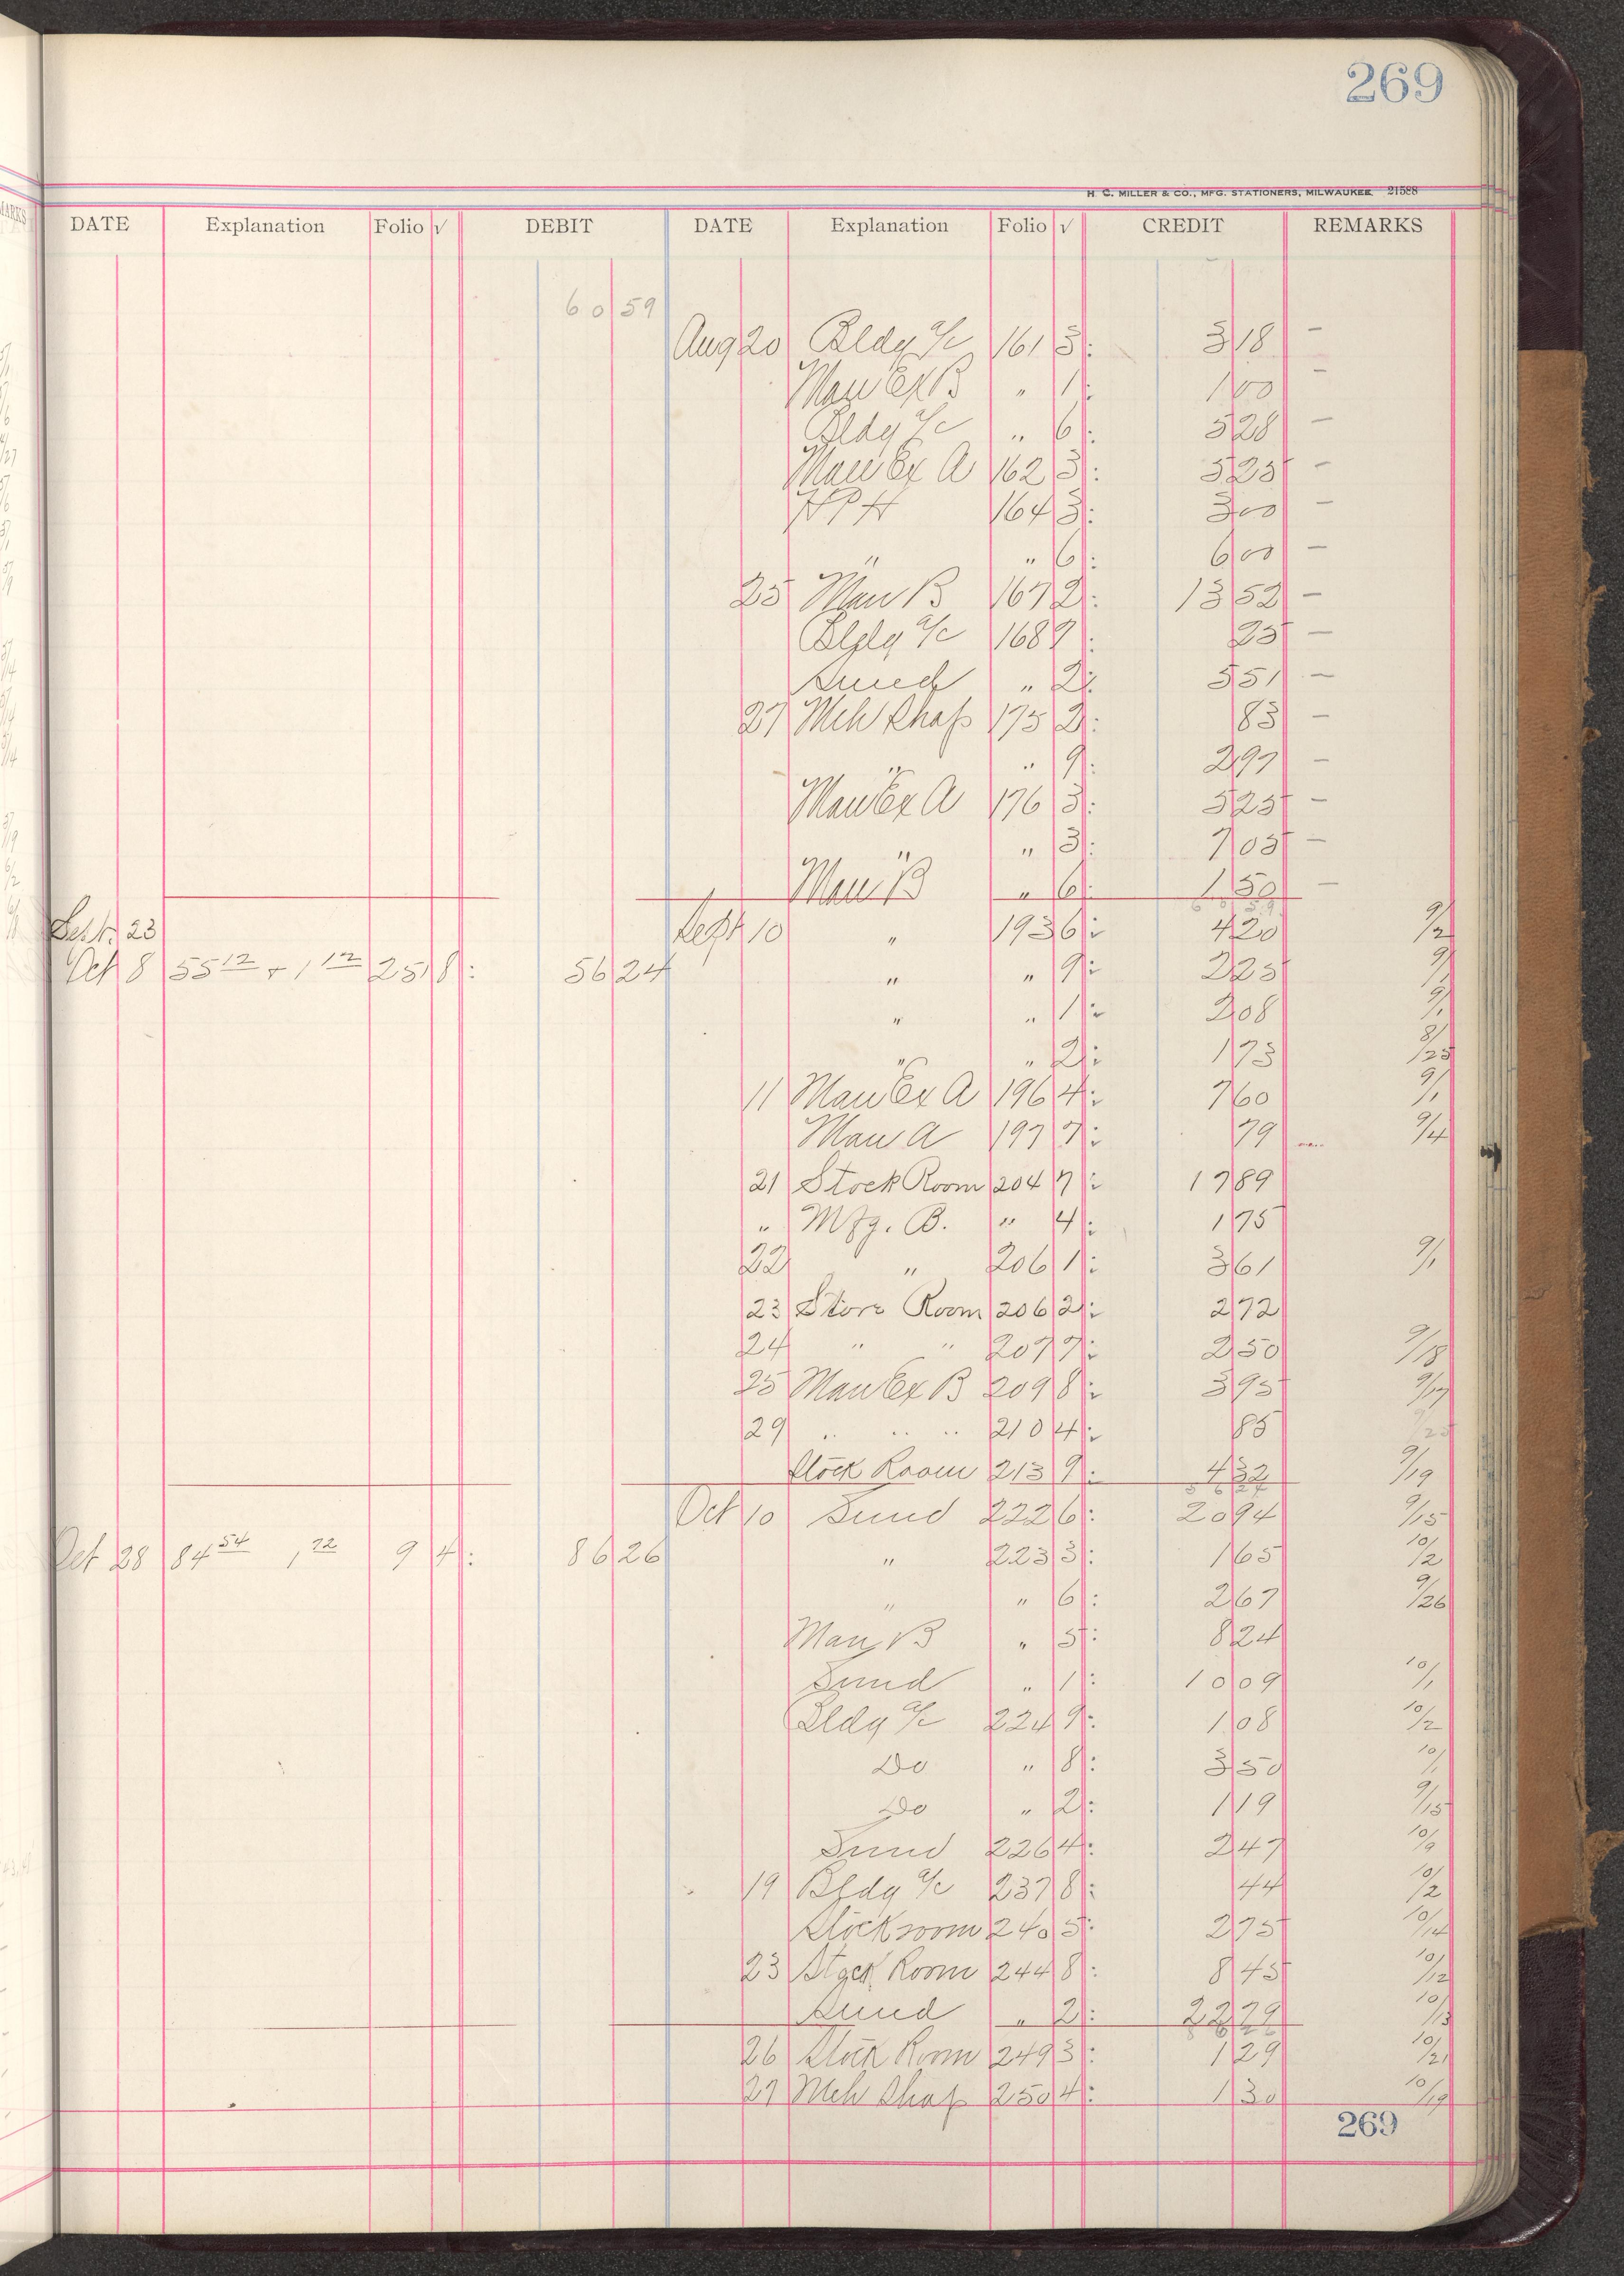 269
H. C. MILLER & CO., MFG. STATIONERS, MILWAUKEE 21588
DATE Explanation Folio √ DEBIT DATE Explanation Folio √ CREDIT REMARKS
60 59
Aug 20 Bldg a/c 161 3 : 3 18 –
Man Ex B " 1 : 1 00 –
Bldg a/c " 6 : 5 28 –
Man Ex A 162 3 : 5 25 –
H P H 164 3 : 3 00 –
" " 6 : 6 00 –
25 Man B 167 2 : 13 52 –
Bldg a/c 168 9 : 25 –
Sund " 2 : 5 51 –
27 Mch Shop 175 2 : 83 –
" " 9 : 2 97 –
Man Ex A 176 3 : 5 25 –
" " 3 : 7 05 –
Man B " 6 : 1 50 –
Sept 23 Sept 10 " 193 6 : 4 20 9/2
Oct 8 55 12 + 1 12 251 8 : 56 24 " " 9 : 2 25 9/1
" " 1 : 2 08 9/1
" " 2 : 1 73 8/25
11 Man Ex A 196 4 : 7 60 9/1
Man A 197 7 : 79 9/4
21 Stock Room 204 7 : 17 89
" Mfg. B. " 4 : 1 75
22 " 206 1 : 3 61 9/1
23 Store Room 206 2 : 2 72
24 " " 207 7 : 2 50 9/18
25 Man Ex B 209 8 : 3 95 9/17
29 " " " 210 4 : 85 9/25
Stock Room 213 9 : 4 32 9/19
56 24
Oct 10 Sund 222 6 : 20 94 9/15
Oct 28 84 54 1 72 9 4 : 86 26 " 223 3 : 1 65 10/2
" " 6 : 2 67 9/26
Man B " 5 : 8 24
Sund " 1 : 10 09 10/1
Bldg a/c 224 9 : 1 08 10/2
Do " 8 : 3 50 10/1
Do " 2 : 1 19 9/15
Sund 226 4 : 2 47 10/9
19 Bldg a/c 237 8 : 44 10/2
Stock room 240 5 : 2 75 10/14
23 Stock Room 244 8 : 8 45 10/12
Sund " 2 : 22 79 10/13
26 Stock Room 249 3 : 1 29 10/21
27 Mch Shop 250 4 : 1 30 10/19
269